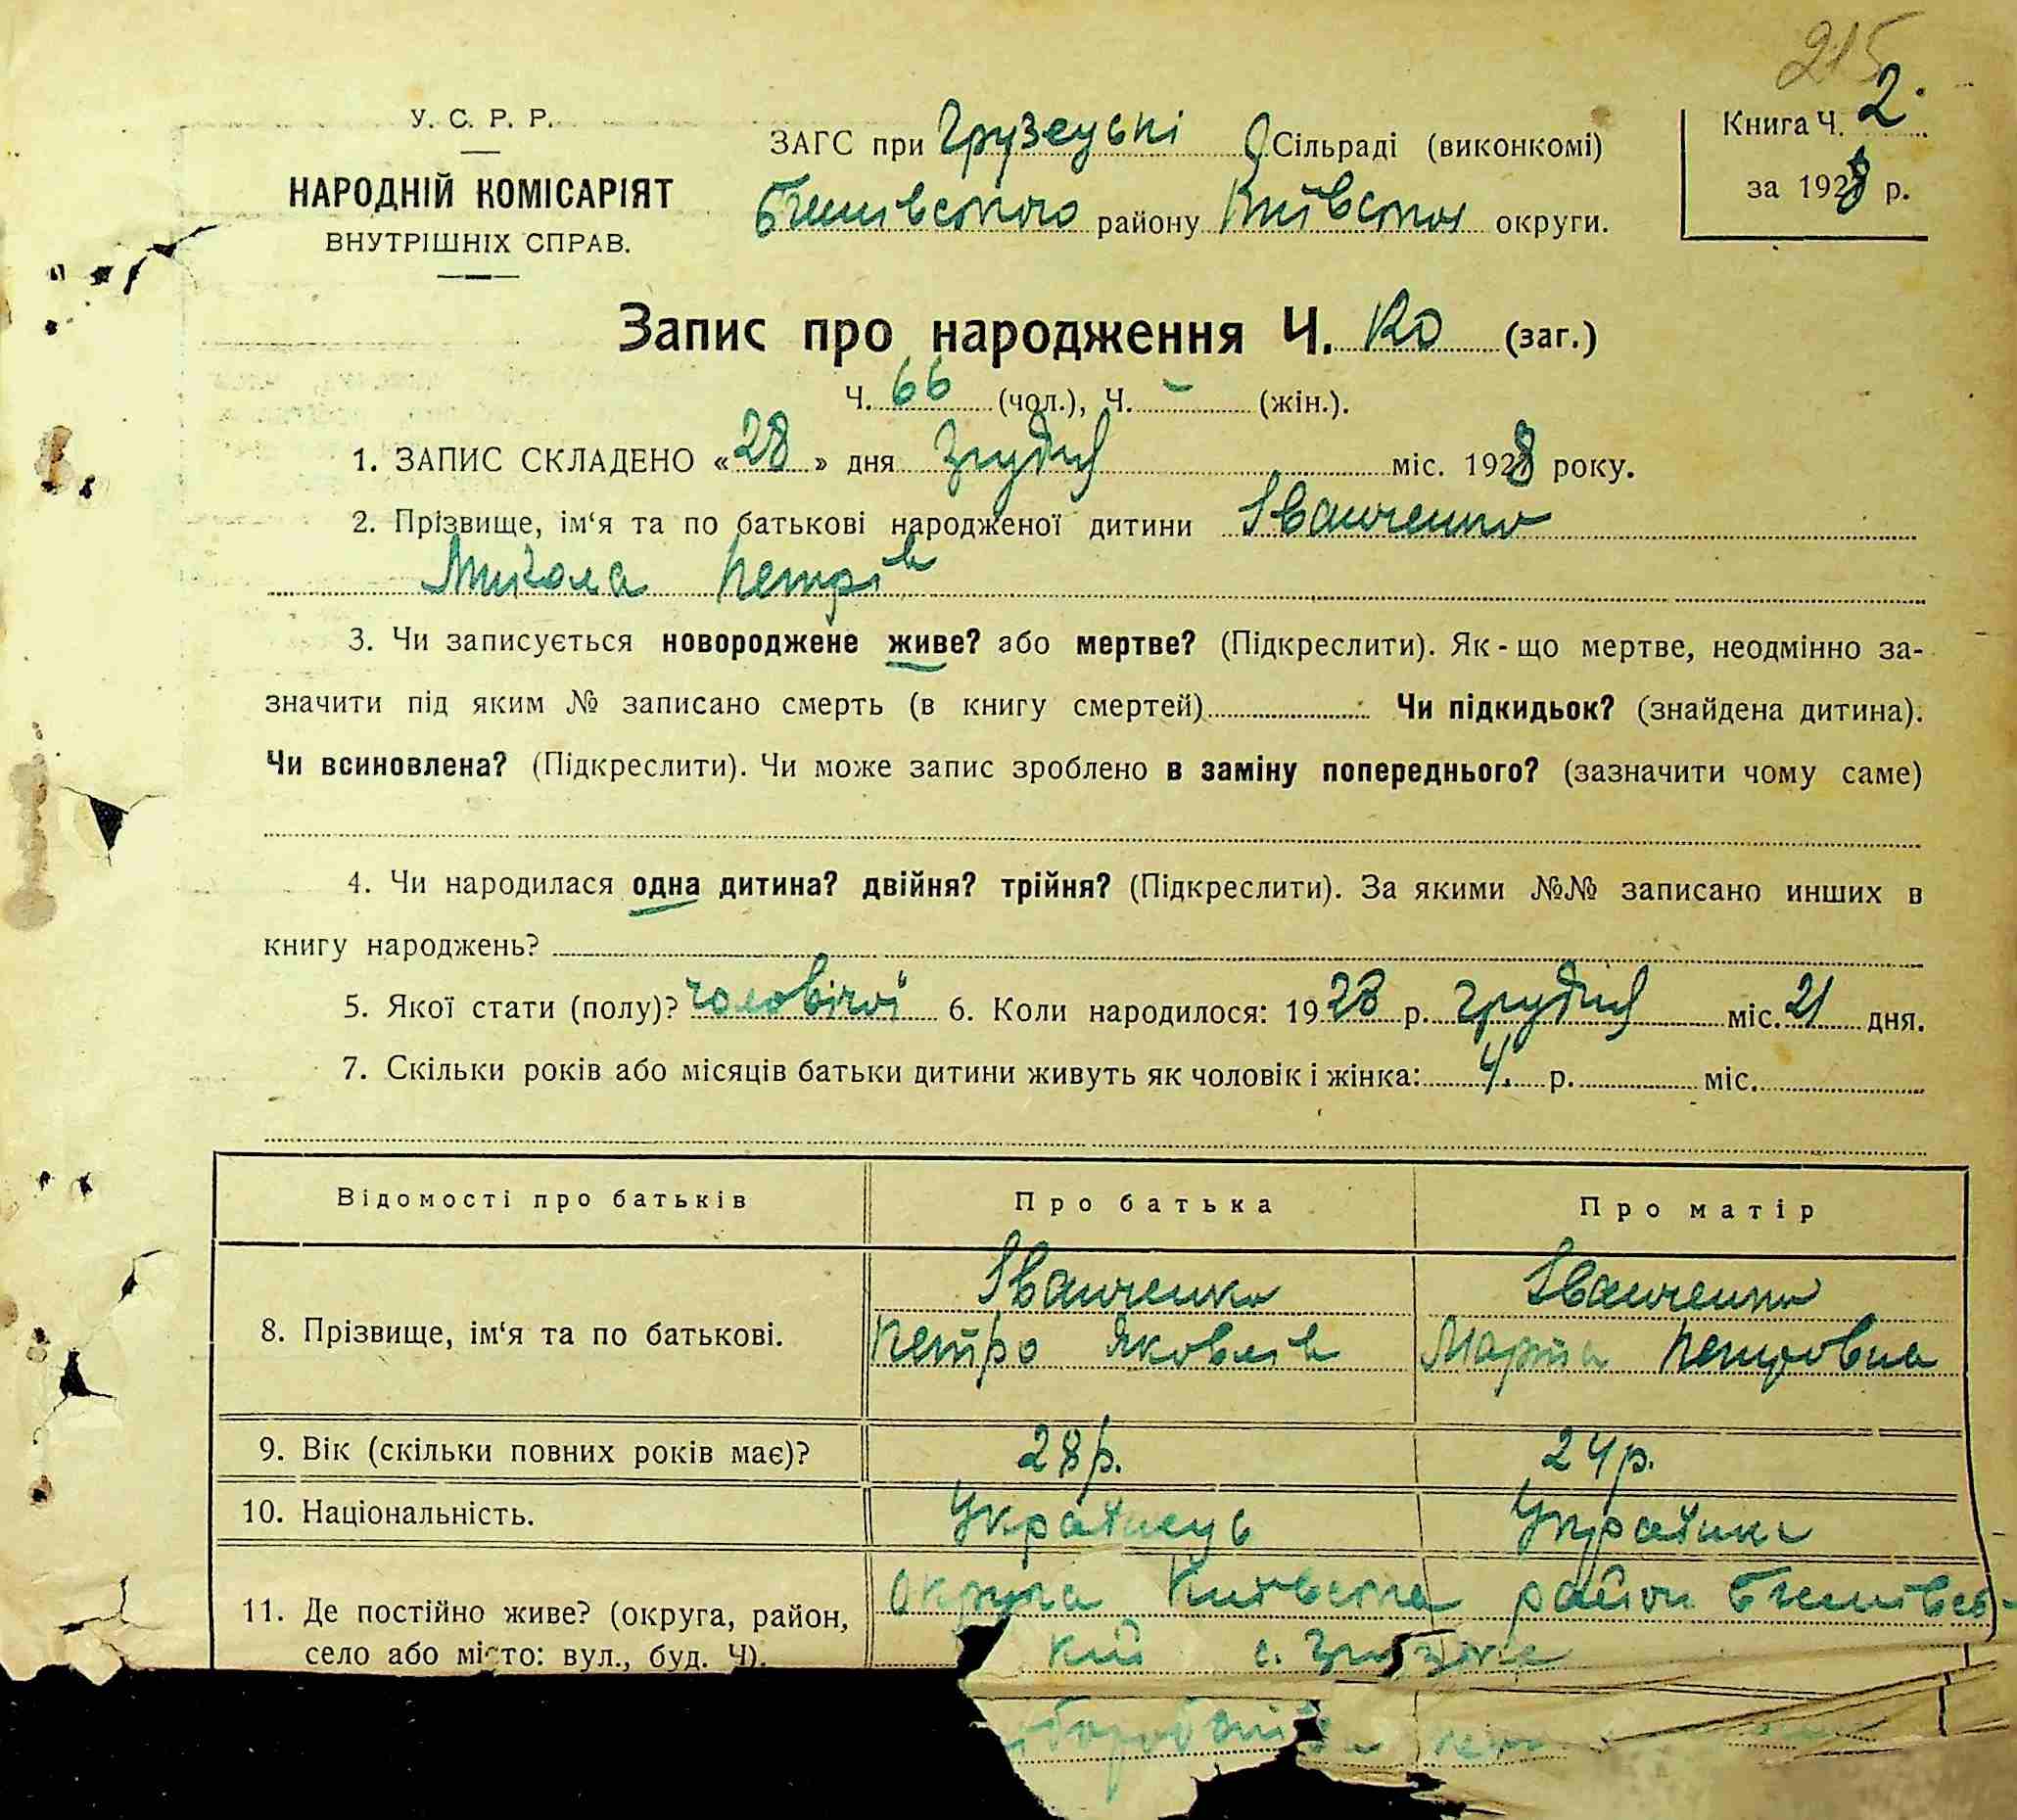 215
У. С. Р. Р.
НАРОДНІЙ КОМІСАРІЯТ
ВНУТРІШНІХ СПРАВ.
ЗАГС при Грузецькі Сільраді (виконкомі)
району Київської округи.
Книга Ч. 2.
за 1928 р.
Запис про народження Ч. (заг.)
Ч. 66 (чол.), Ч. - (жін.).
1. ЗАПИС СКЛАДЕНО «28» дня грудня міс. 1928 року.
2. Прізвище, ім‘я та по батькові народженої дитини Іванченко
Микола Петрів
3. Чи записується новороджене живе? або мертве? (Підкреслити). Як-що мертве, неодмінно за-
значити під яким № записано смерть (в книгу смертей) Чи підкидьок? (знайдена дитина).
Чи всиновлена? (Підкреслити). Чи може запис зроблено в заміну попереднього? (зазначити чому саме)
4. Чи народилася одна дитина? двійня? трійня? (Підкреслити). За якими №№ записано инших в
книгу народжень?
5. Якої стати (полу)? чоловічої 6. Коли народилося: 1928 р. грудня міс. 21 дня.
7. Скільки років або місяців батьки дитини живуть як чоловік і жінка: 4. р. міс.
Відомості про батьків Про батька Про матір
8. Прізвище, ім‘я та по батькові. Іванченко Іванченко
Петро Яковлів Марія Петровна
9. Вік (скільки повних років має)? 28 р. 24 р.
10. Національність. Українець Українка
11. Де постійно живе? (округа, район, округа Київська район
село або місто: вул., буд. Ч). кий с.